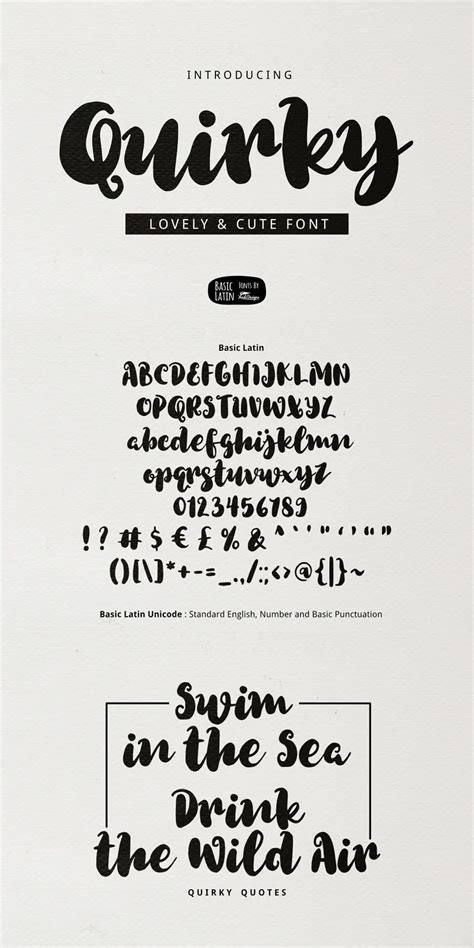 INTRODUCING
Quirky
LOVELY & CUTE FONT
BASIC LATIN
FONTS BY
Basic Latin
ABCDEFGHIJKLMN
OPQRSTUVWXYZ
abcdefghijklmn
opqrstuvwxyz
0123456789
! ? # $ € £ % & ^ ` ' " ‘ ’ “ ”
()[\]*+-=_.,/:;<>@{|}~
Basic Latin Unicode : Standard English, Number and Basic Punctuation
Swim
in the Sea
Drink
the Wild Air
QUIRKY QUOTES